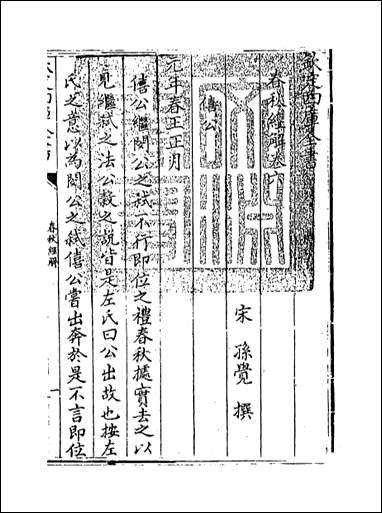 欽定四庫全書
春秋經解卷六
宋 孫覺 撰
僖公
元年春王正月
僖公繼閔公之弒不行即位之禮春秋據實去之以
見繼弒之法公穀之說皆是左氏曰公出故也按左
氏之意以為閔公之弒僖公嘗出奔於是不言即位
春秋經解